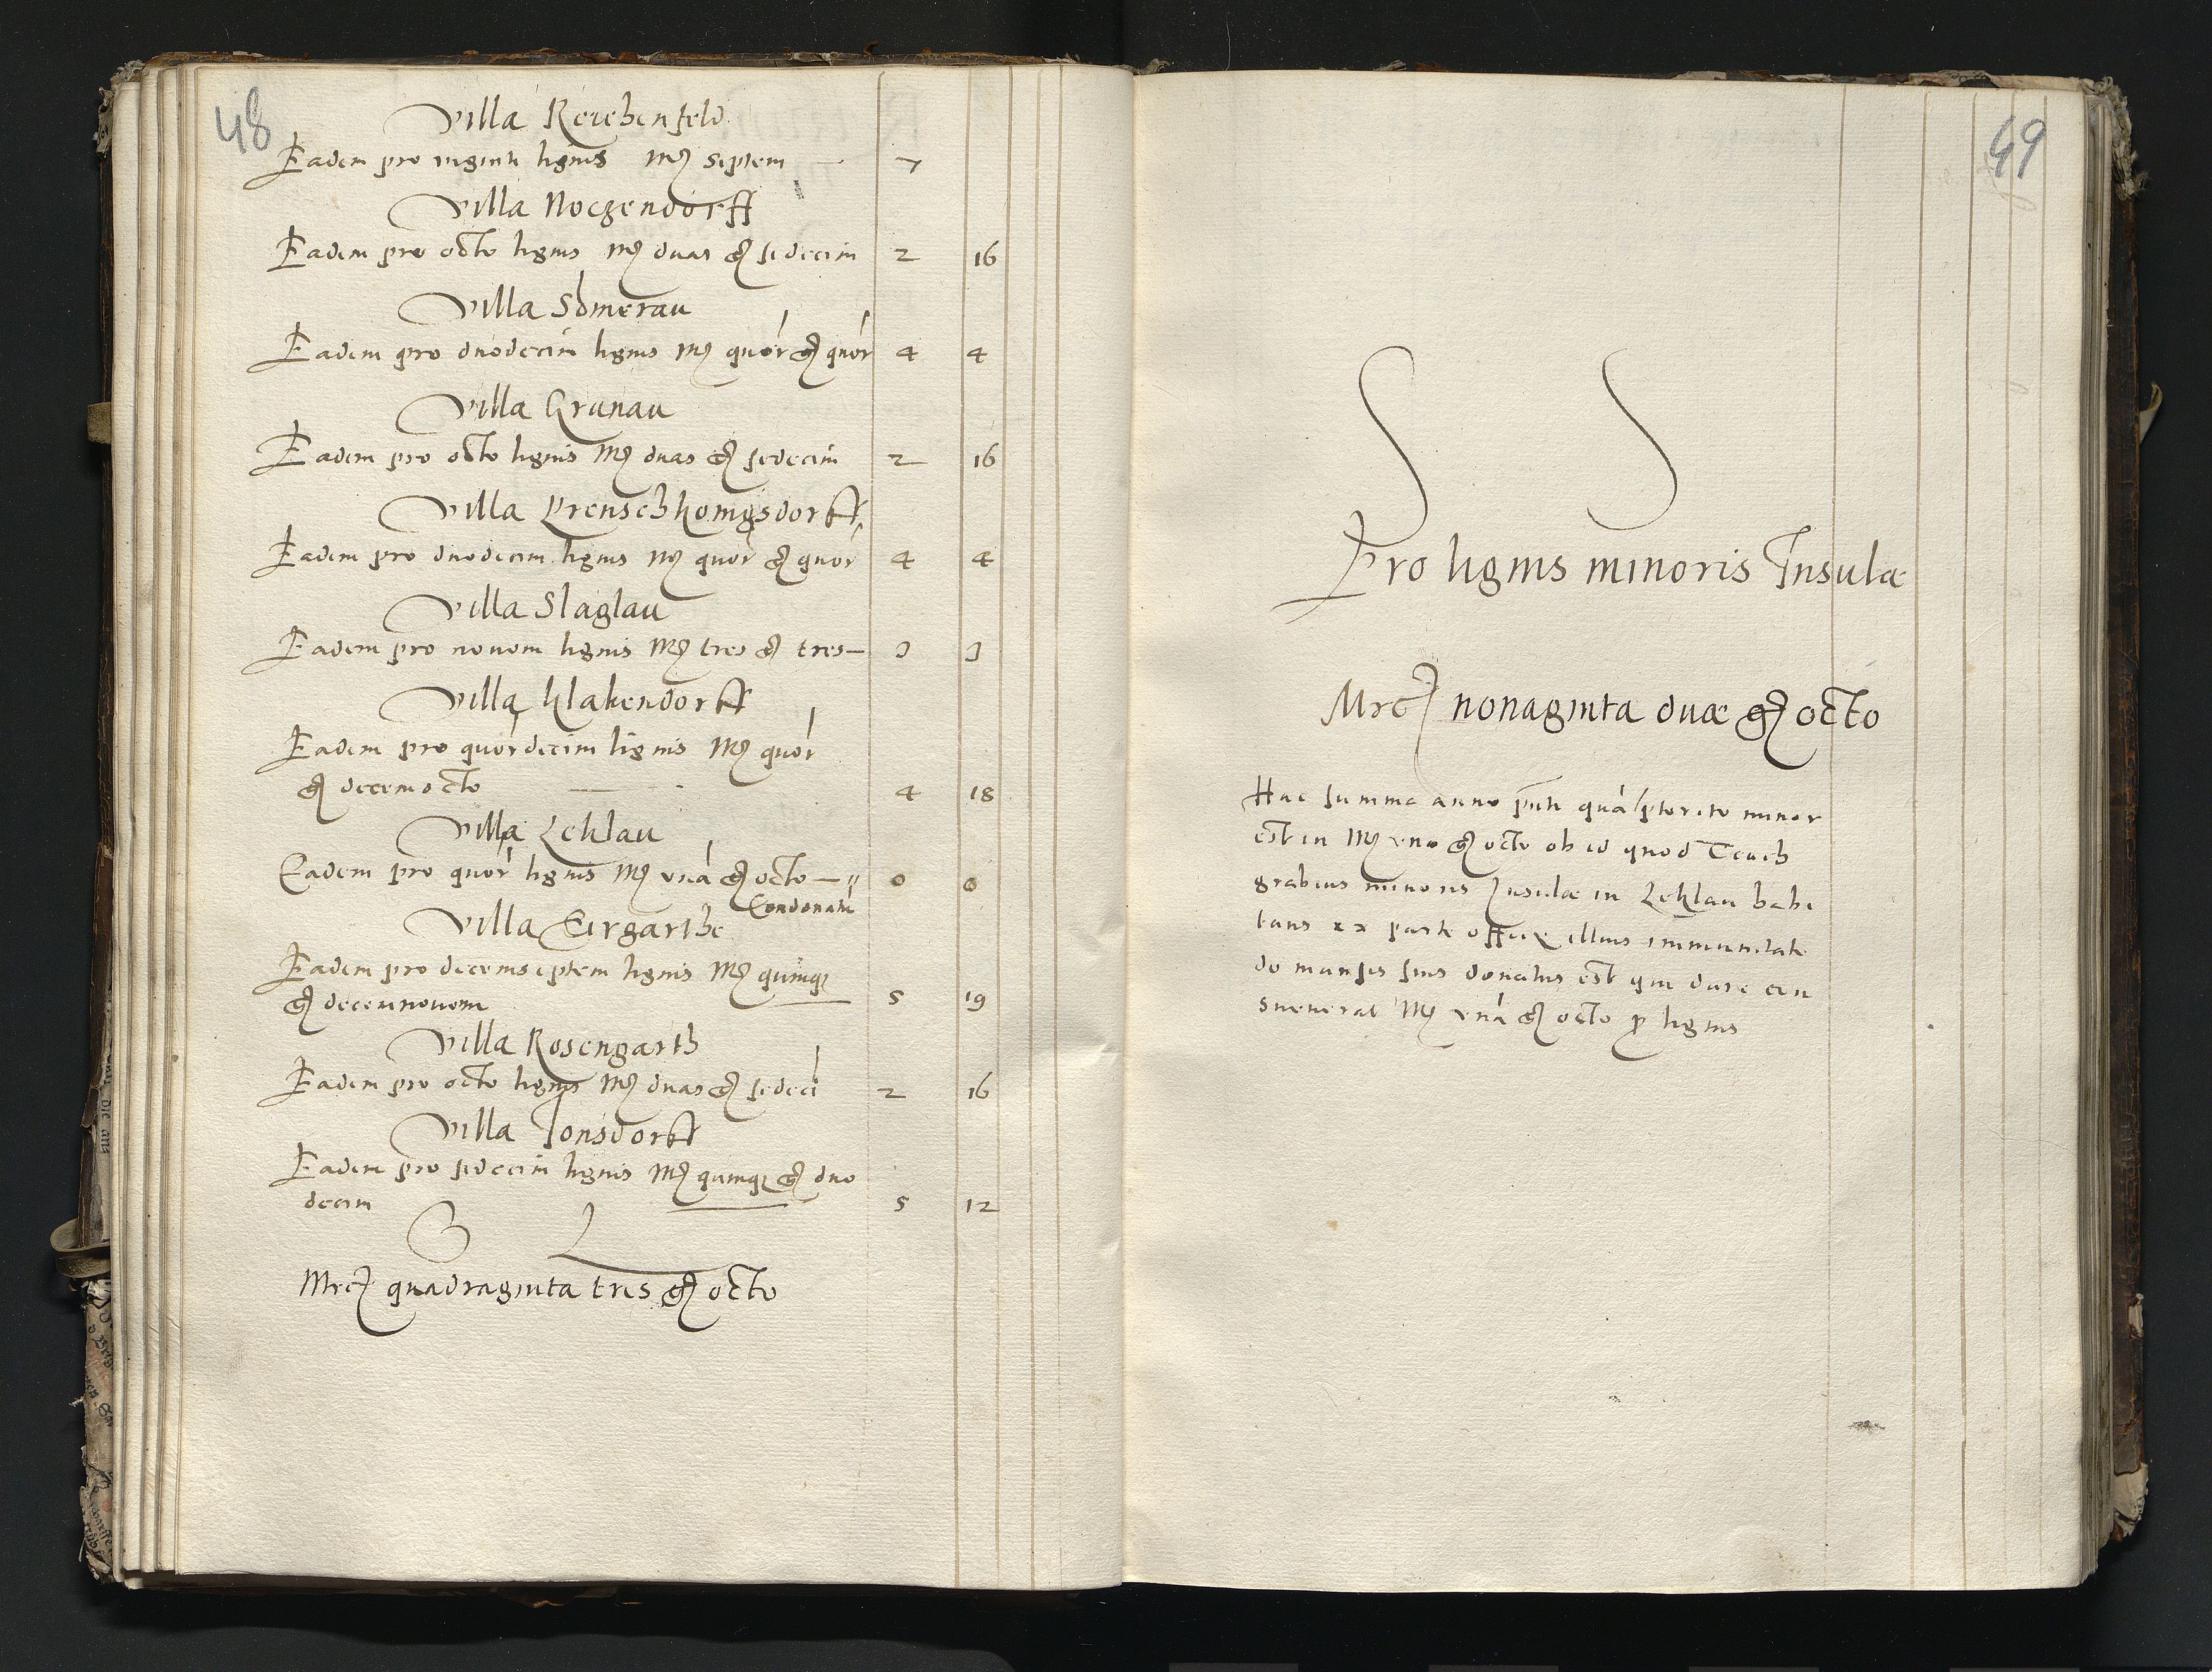 48
Villa Reichenfeld
Eadem pro viginti lignis Mrc septem — 7
Villa Noczendorff
Eadem pro octo lignis Mrc duas gr sedecim 2 16
Villa Somerau
Eadem pro duodecim lignis Mrc quor gr quor 4 4
Villa Grunau
Eadem pro octo lignis Mrc duas gr sedecim 2 16
Villa Preuschkonigsdorff
Eadem pro duodecim lignis Mrc quor gr quor 4 4
Villa Slaglau
Eadem pro novem lignis Mrc tres gr tres — 3 3
Villa Klakendorff
Eadem pro quordecim lignis Mrc quor
gr decemocto — 4 18
Villa Leklau
Eadem pro quor lignis Mrc una gr octo — 0 0
Condonate
Villa Eirgarthe
Eadem pro decemseptem lignis Mrc quinqz
gr decemnovem 5 19
Villa Rosengarth
Eadem pro octo lignis Mrc duas gr sedeci 2 16
Villa Jonsdorff
Eadem pro sedecim lignis Mrc quinqz gr duo
decim 5 12
S L
Mrc quadraginta tres gr octo
49
S S
Pro lignis minoris Insulæ
Mrc nonaginta duæ gr octo
Hac summa anno pnti qua pterito minor
est in Mrc una gr octo ob id quod Teich
grabius minoris Insulæ in Leklau habi
tans ex parte officii illius immunitate
do mansis suis donatus est qui dare con
sueverat Mrc una gr octo p lignis